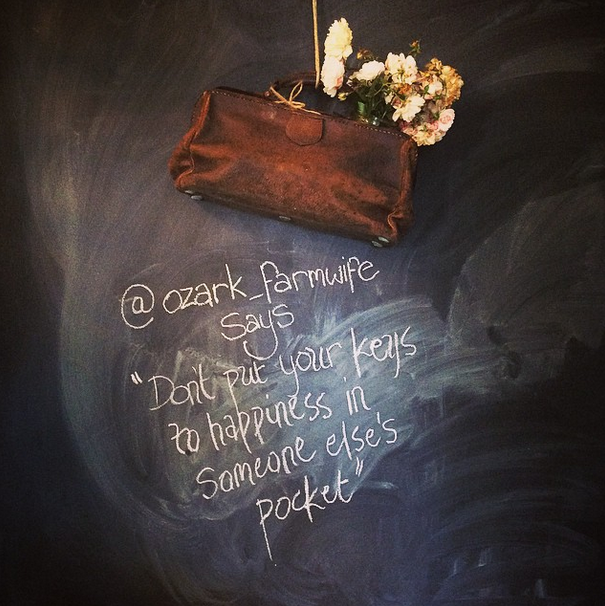 @ozark_farmwife
says
"Don't put your keys
to happiness in
someone else's
pocket"